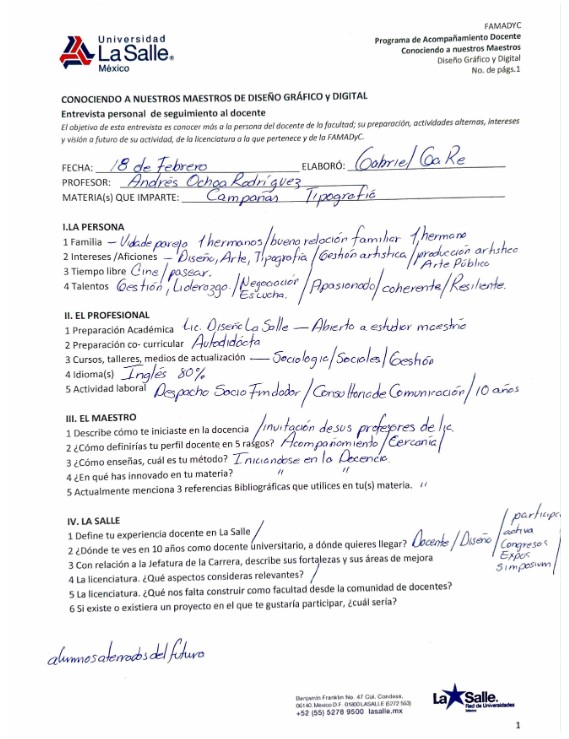 Universidad
La Salle®
México
FAMADYC
Programa de Acompañamiento Docente
Conociendo a nuestros Maestros
Diseño Gráfico y Digital
No. de págs.1
CONOCIENDO A NUESTROS MAESTROS DE DISEÑO GRÁFICO y DIGITAL
Entrevista personal de seguimiento al docente
El objetivo de esta entrevista es conocer más a la persona del docente de la facultad; su preparación, actividades alternas, intereses
y visión a futuro de su actividad, de la licenciatura a la que pertenece y de la FAMADyC.
FECHA: 18 de Febrero ELABORÓ: Gabriel Ga Re
PROFESOR: Andrés Ochoa Rodríguez
MATERIA(s) QUE IMPARTE: Campañas Tipografía
I.LA PERSONA
1 Familia – Vida de pareja 1 hermanos/buena relación familiar 1 hermano
2 Intereses /Aficiones – Diseño, Arte, Tipografía / Gestión artística / producción artística
Arte Público
3 Tiempo libre Cine / pasear.
4 Talentos Gestión, Liderazgo / Negociación / Apasionado / coherente / Resiliente.
Escucha.
II. EL PROFESIONAL
1 Preparación Académica Lic. Diseño La Salle – Abierto a estudiar maestría
2 Preparación co- curricular Autodidacta
3 Cursos, talleres, medios de actualización — Sociología / Sociales / Gestión
4 Idioma(s) Inglés 80%
5 Actividad laboral Despacho Socio Fundador / Consultoría de Comunicación / 10 años
III. EL MAESTRO
1 Describe cómo te iniciaste en la docencia / Invitación de sus profesores de lic.
2 ¿Cómo definirías tu perfil docente en 5 rasgos? Acompañamiento / Cercanía /
3 ¿Cómo enseñas, cuál es tu método? Iniciandose en la Docencia.
4 ¿En qué has innovado en tu materia? " "
5 Actualmente menciona 3 referencias Bibliográficas que utilices en tu(s) materia. "
IV. LA SALLE
1 Define tu experiencia docente en La Salle /
2 ¿Dónde te ves en 10 años como docente universitario, a dónde quieres llegar? Docente / Diseño / participa
activa
Congresos
Expos
Simposium /
3 Con relación a la Jefatura de la Carrera, describe sus fortalezas y sus áreas de mejora
4 La licenciatura. ¿Qué aspectos consideras relevantes? /
5 La licenciatura. ¿Qué nos falta construir como facultad desde la comunidad de docentes?
6 Si existe o existiera un proyecto en el que te gustaría participar, ¿cuál sería?
alumnos aterrados del futuro
Benjamín Franklin No. 47 Col. Condesa,
06140, México D.F. 01800LASALLE (5272 563)
+52 (55) 5278 9500 lasalle.mx
La Salle.
Red de Universidades
México
1